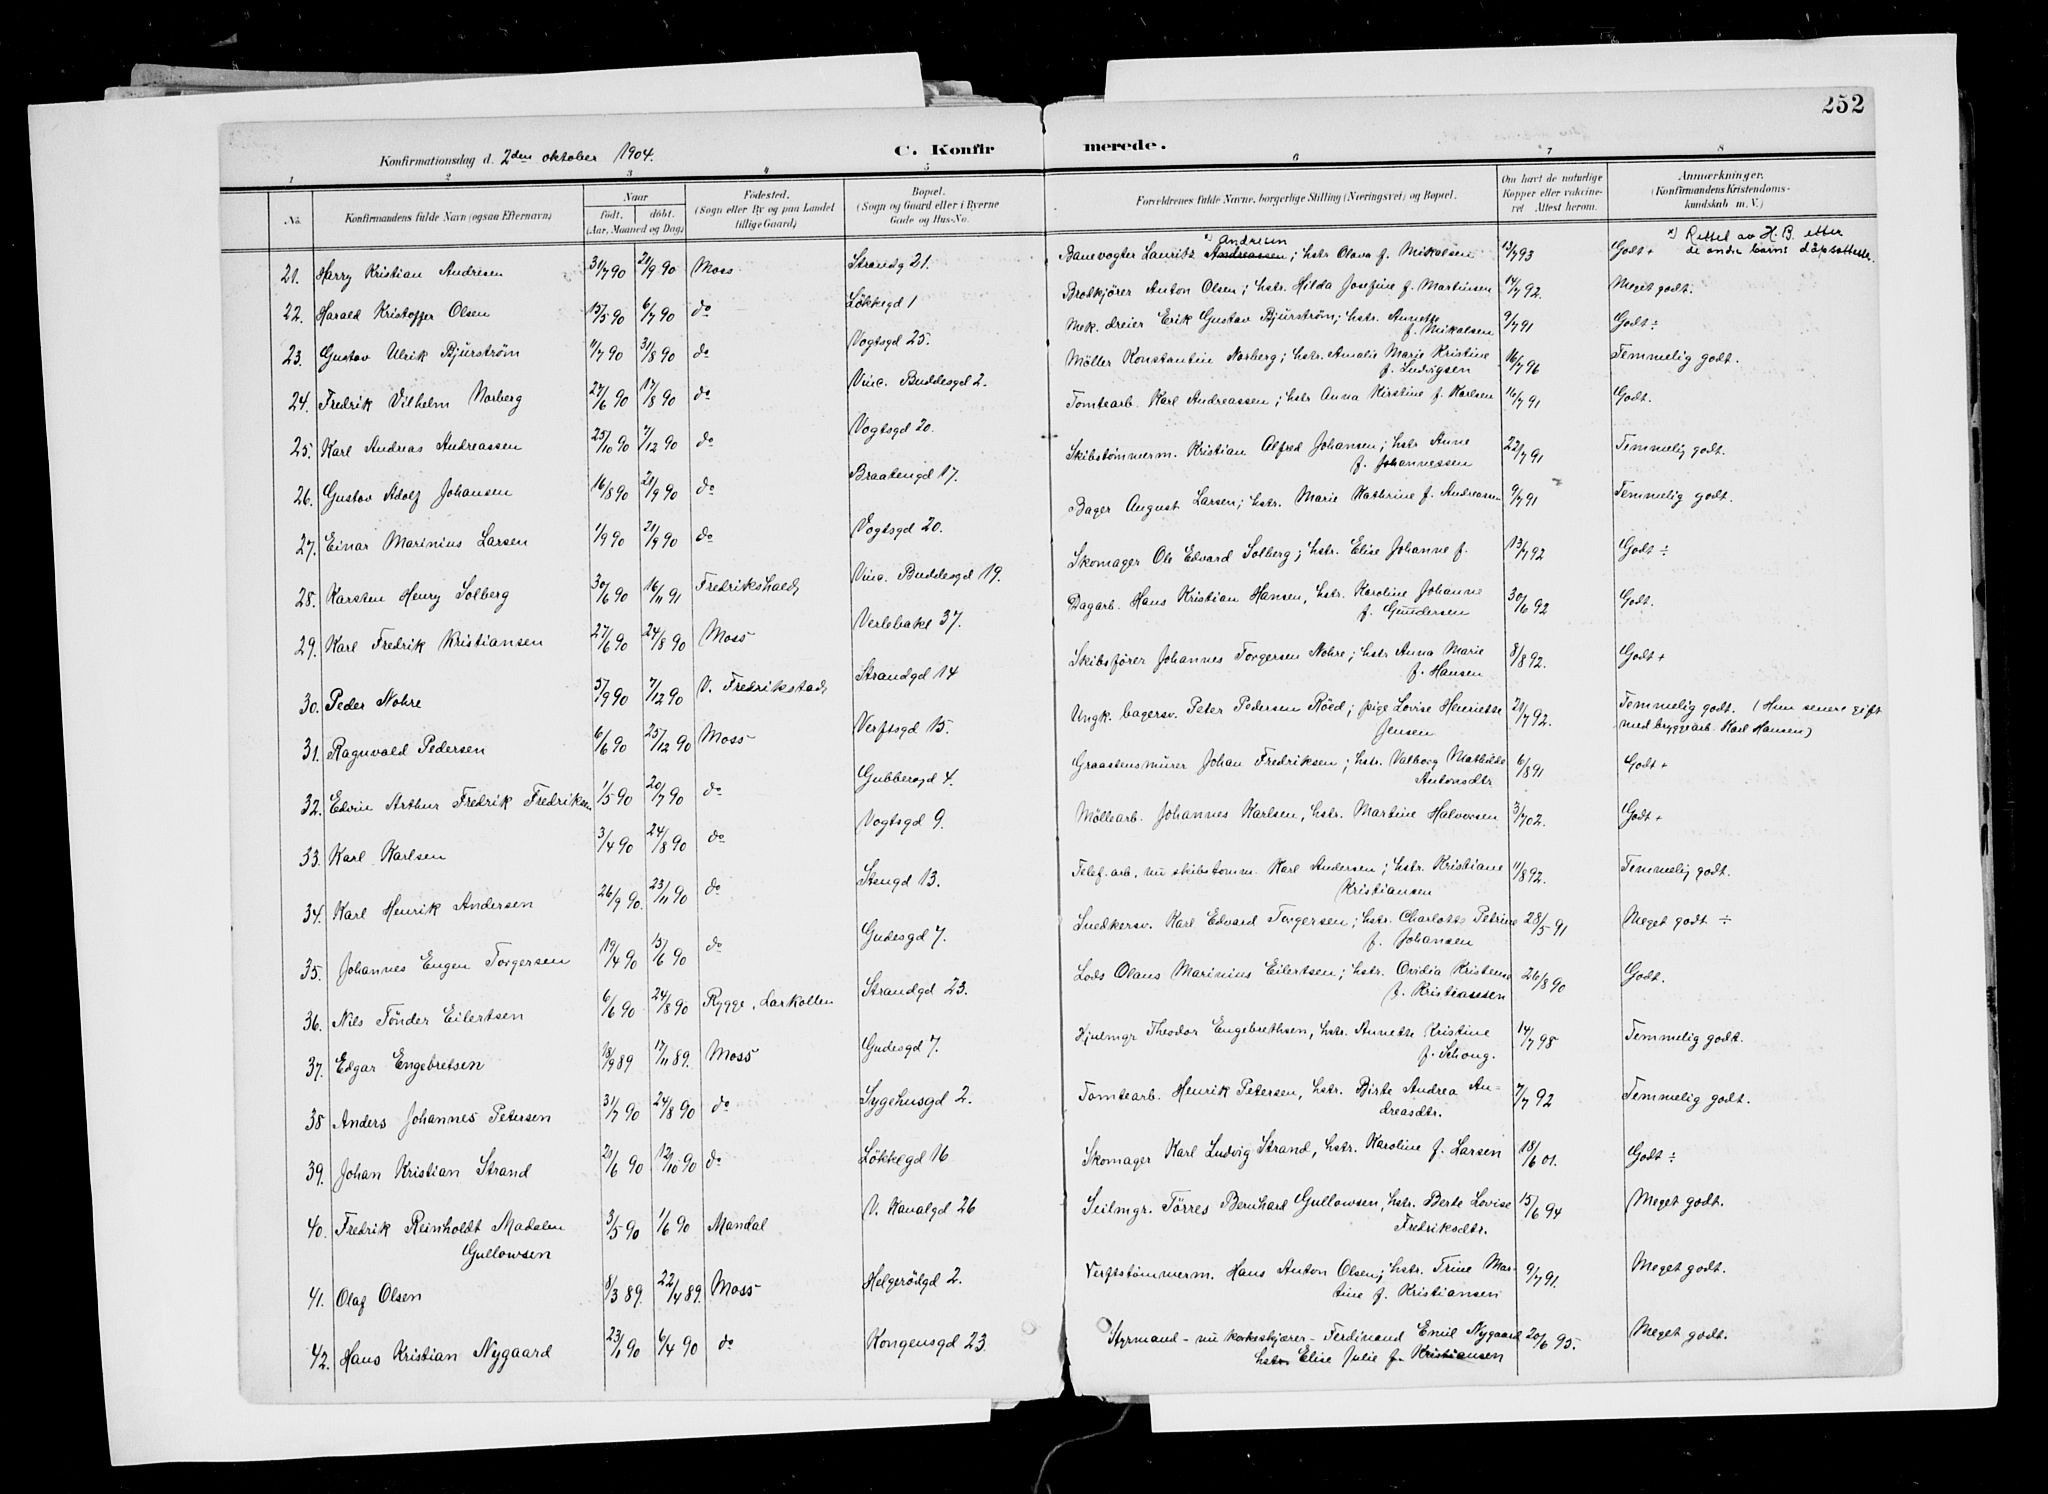 252
Konfirmationsdag d. 2den oktober 1904. C. Konfirmerede.
1 2 3 4 5 6 7 8
No. Konfirmandens fulde Navn (ogsaa Efternavn) Naar født. døbt. (Aar, Maaned og Dag) Fødested. (Sogn eller By og paa Landet tillige Gaard) Bopæl. (Sogn og Gaard eller i Byerne Gade og Hus-No. Forældrenes fulde Navne, borgerlige Stilling (Næringsvei) og Bopæl. Om havt de naturlige Kopper eller vaccineret Attest herom. Anmærkninger. (Konfirmandens Kristendomskundskab m. V.)
21. Harry Kristian Andresen 31/7 90 21/9 90 Moss Strandg 21. Banevogter Lauritz Andreassen x) Andresen; hstr Olava f. Mikalsen 13/7 93 Godt + x) Rettet av H. B. etter de andre barns dåpsattester.
22. Harald Kristoffer Olsen 15/5 90 6/7 90 do Løkkegd 1 Brødkjører Anton Olsen; hstr. Hilda Josefine f. Martinsen 14/7 92. Meget godt.
23. Gustav Ulrik Bjurström 11/7 90 31/8 90 do Vogtsgd 25. Mek. dreier Erik Gustav Bjurström; hstr. Annette f. Mikalsen 9/7 91 Godt ÷
24. Fredrik Vilhelm Norberg 27/6 90 17/8 90 do Vinc. Buddesgd 2. Møller Konstantin Norberg; hstr. Amalie Marie Kristine f. Ludvigsen 16/7 96 Temmelig godt.
25. Karl Andreas Andreassen 25/10 90 7/12 90 do Vogtsgd 20. Tomtearb. Karl Andreassen; hstr Anna Kirstine f. Karlsen 16/7 91 Godt.
26. Gustav Adolf Johansen 16/8 90 21/9 90 do Braatengd 17. Skibstømmerm. Kristian Alfred Johansen; hstr Anne f. Johannessen 22/7 91 Temmelig godt.
27. Einar Marinius Larsen 1/9 90 21/9 90 do Vogtsgd 20. Bager August Larsen; hstr. Marie Kathrine f. Andreasen 9/7 91 Temmelig godt.
28. Karsten Henry Solberg 30/6 90 16/11 91 Fredrikshald Vinc. Buddesgd 19. Skomager Ole Edvard Solberg; hstr. Elise Johanne f. 13/7 92 Godt ÷
29. Karl Fredrik Kristiansen 27/6 90 24/8 90 Moss Verlebakl 37. Dagarb. Hans Kristian Hansen, hstr. Karoline Johanne f. Gundersen 30/6 92 Godt.
30. Peder Nohre 5/9 90 7/12 90 V. Fredrikstad Strandgd 14 Skibsfører Johannes Torgersen Nohre; hstr Anna Marie f. Hansen 8/8 92. Godt +
31. Ragnvald Pedersen 6/6 90 25/12 90 Moss Verftsgd 15. Ungk. bagersv. Peter Pedersen Röed; pige Lovise Henriette Jensen 21/7 92. Temmelig godt. (Hun senere gift med bryggearb. Karl Hansen)
32. Edvin Arthur Fredrik Fredriksen 1/5 90 20/7 90 do Gubberogd 4. Graastensmurer Johan Fredriksen; hstr. Valborg Mathilde Antonsdtr 6/8 91 Godt +
33. Karl Karlsen 3/4 90 24/8 90 do Vogtsgd 9. Møllearb. Johannes Karlsen, hstr. Martine Halvorsen 3/7 02. Godt +
34. Karl Henrik Andersen 26/9 90. 23/11 90 do Stengd 13. Telef.arb. nu skibstømm. Karl Andersen; hstr. Kristiane Kristiansen 11/8 92. Temmelig godt.
35. Johannes Eugen Torgersen 19/4 90 15/6 90 do Gudesgd 7. Snedkersv. Karl Edvard Torgersen; hstr. Charlotte Petrine f. Johansen 28/5 91 Meget godt ÷
36. Nils Tönder Eilertsen 6/6 90 24/8 90 Rygge, Larkollen Strandgd 23. Lods Olaus Marinius Eilertsen; hstr. Ovidia Kristense f. Kristiansen 26/8 90 Godt.
37. Edgar Engebretsen 18/9 89 17/11 89. Moss Gudesgd 7. Hjulmgr Theodor Engebrethsen, hstr. Annette Kristine f. Schoug. 14/7 98 Temmelig godt.
38 Anders Johannes Petersen 31/7 90 24/8 90 do Sygehusgd 2. Tomtearb. Henrik Petersen, hstr. Birte Andrea Andreasdtr. 7/7 92 Temmelig godt.
39. Johan Kristian Strand 21/6 90 12/10 90 do Løkkegd 16 Skomager Karl Ludvig Strand, hstr. Karoline f. Larsen 18/6 01. Godt ÷
40. Fredrik Reinholdt Madalen Gullowsen 3/5 90 1/6 90 Mandal V. Kanalgd 26 Seilmgr. Tørres Bernhard Gullowsen, hstr. Berte Lovise Fredriksdtr. 15/6 94 Meget godt.
41. Olaf Olsen 8/3 89. 22/4 89. Moss Helgerödgd 2. Verftstømmerm. Hans Anton Olsen; hstr. Trine Martine f. Kristiansen 9/7 91. Meget godt.
42. Hans Kristian Nygaard 23/1 90 6/4 90 do Kongensgd 23. Styrmand - nu kokeskjører - Ferdinand Emil Nygaard hstr. Elise Julie f. Kristiansen 20/6 95. Meget godt.